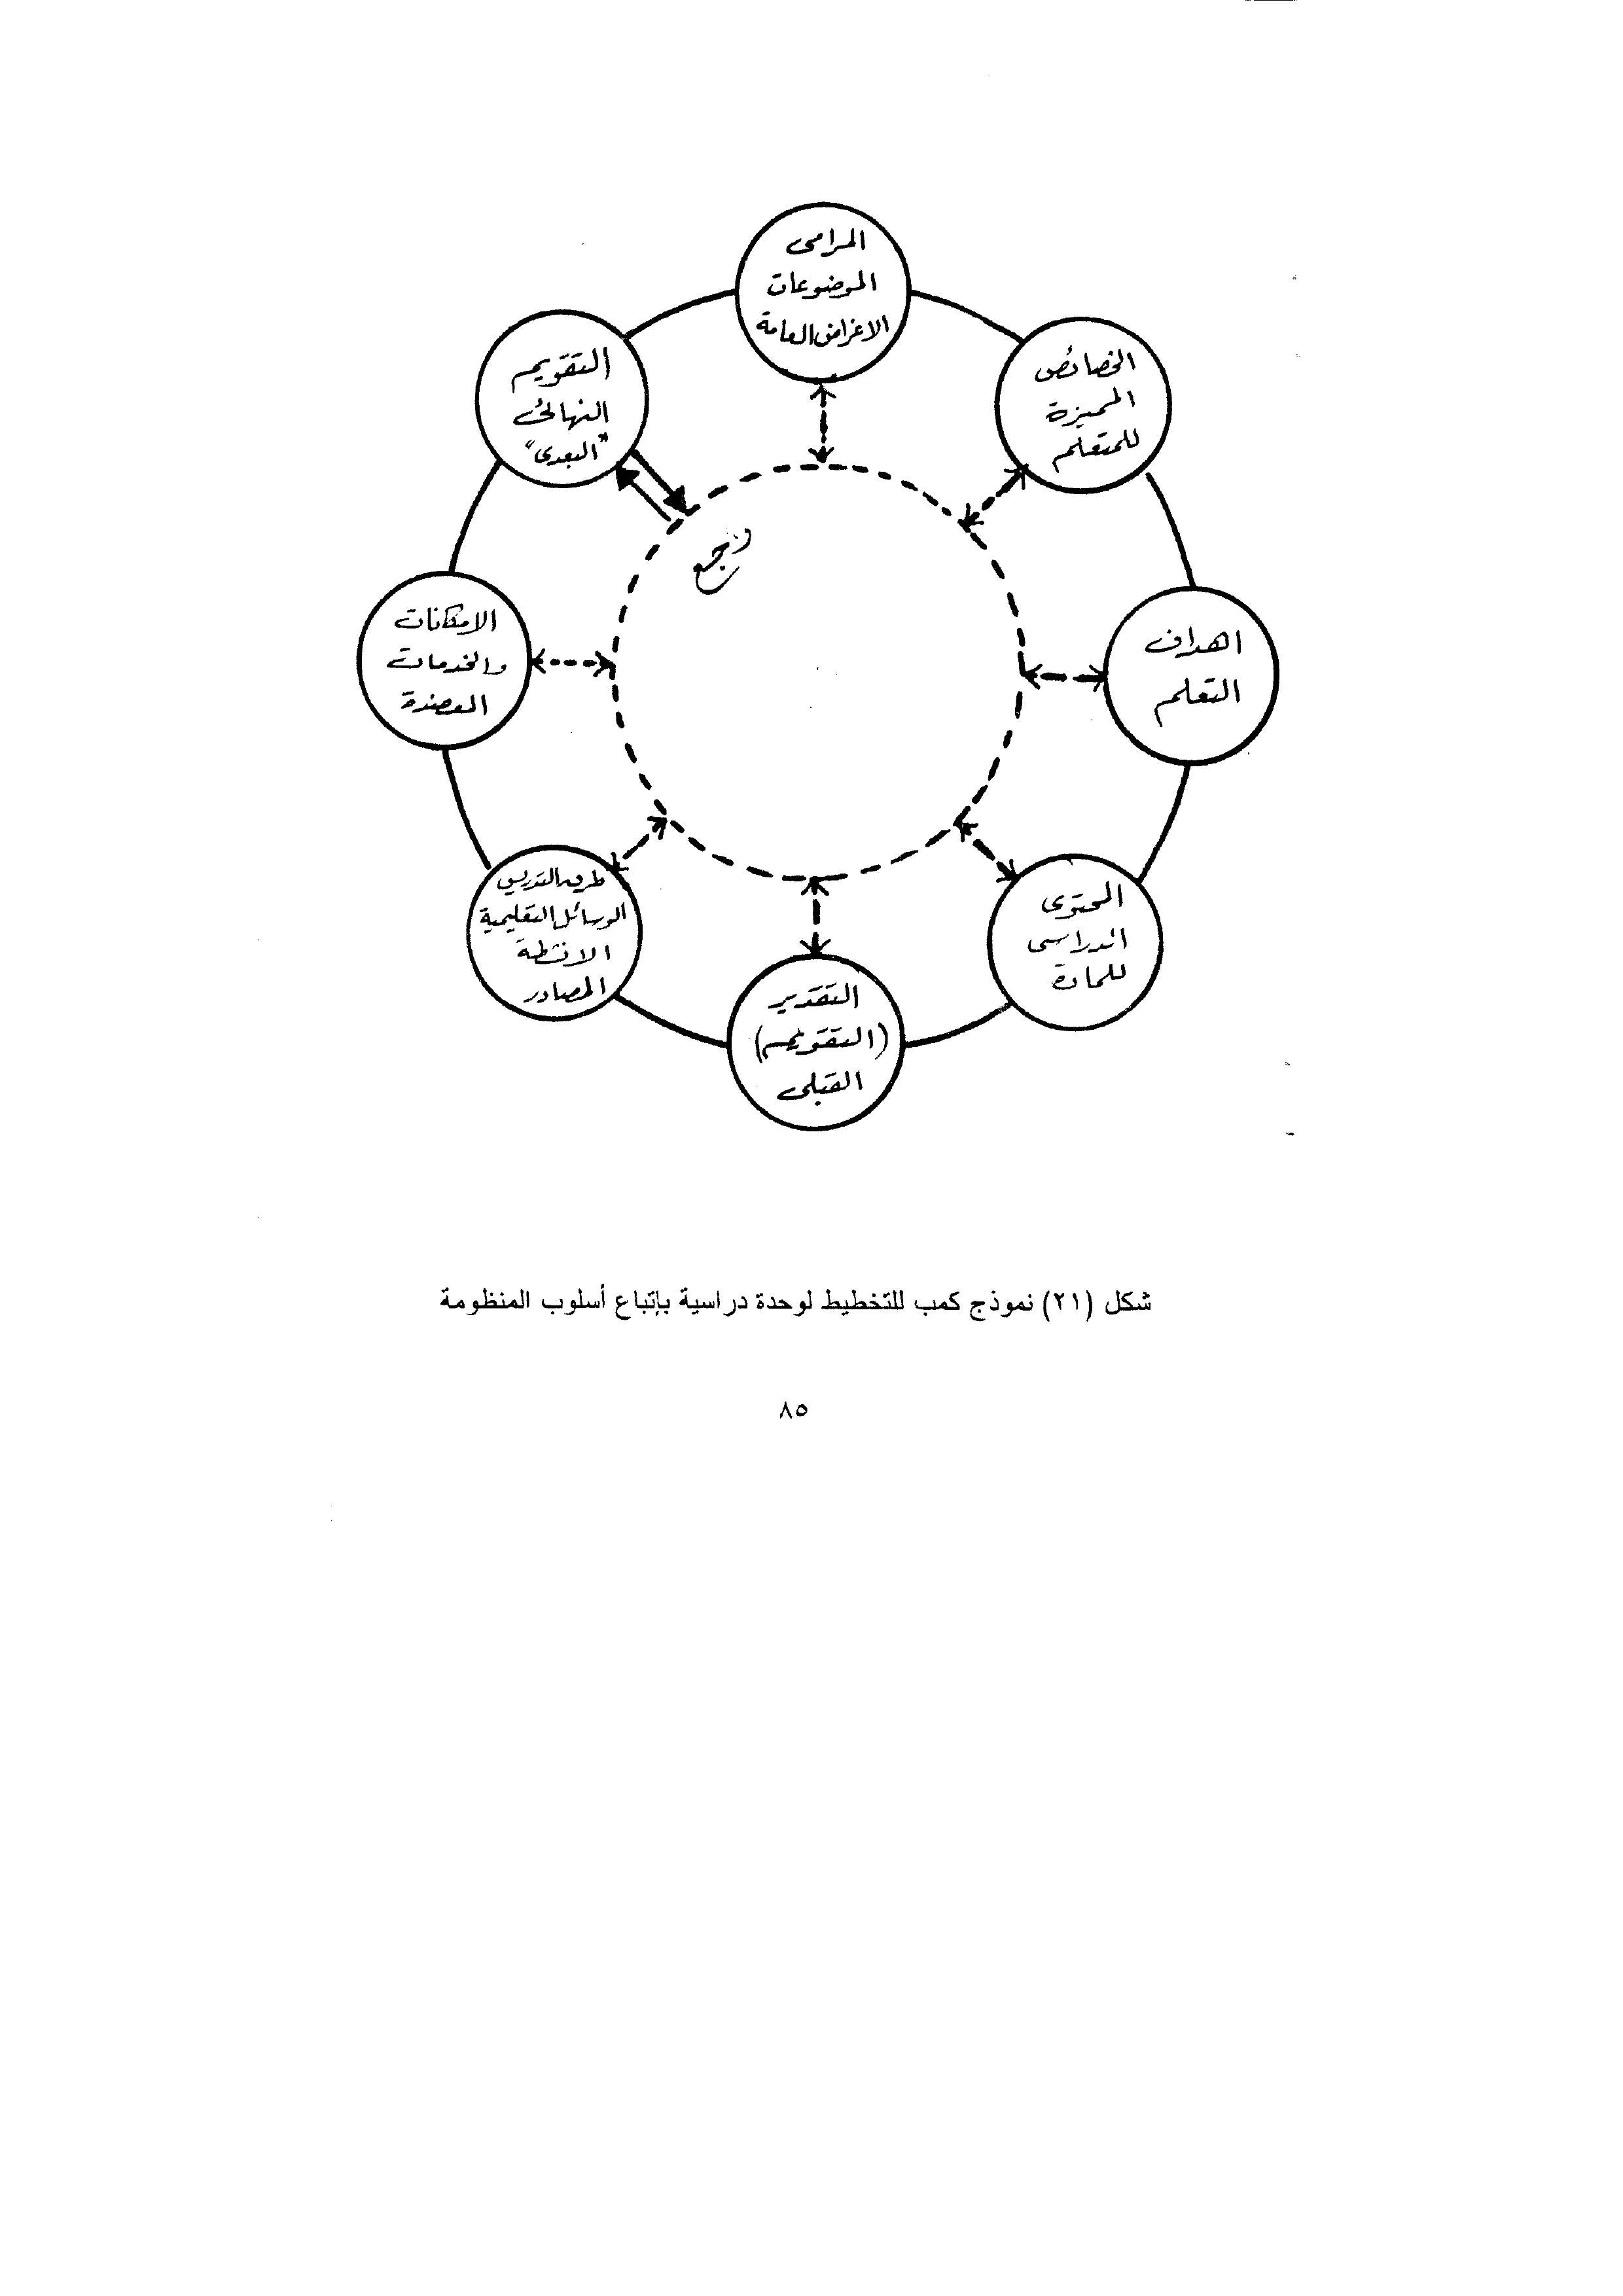 المرامى
الموضوعات
الاغراض العامة
الخصائص
المميزة
للمتعلم
اهداف
التعلم
المحتوى
الدراسى
للمادة
التقدير
(التقويم)
القبلى
طرق التدريس
الوسائل التعليمية
الانشطة
المصادر
الامكانات
والخدمات
التقويم
النهائى
"البعدى"
شكل (٢١) نموذج كمب للتخطيط لوحدة دراسية بإتباع أسلوب المنظومة
٨٥